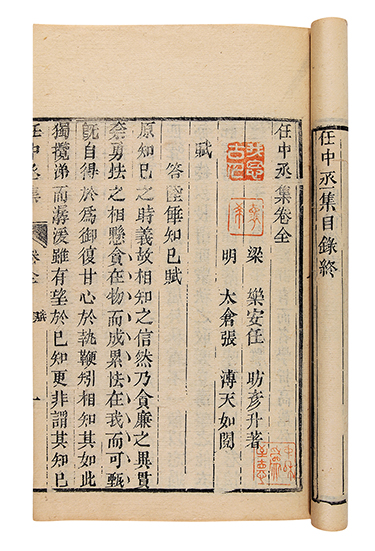 任中丞集目錄終
任中丞集卷全
梁 樂安任 昉彥升著
明 太倉張 溥天如閱
賦
答陸倕知己賦
原知己之時義故相知之信然乃貪廉之異貫
奈勇怯之相懸貪在物而成累怯在我而可甄
旣自得於爲御復甘心於執鞭矧相知其如此
獨攬涕而潺湲雖有望於己知更非謂其知己
任中丞集 卷全 賦 一